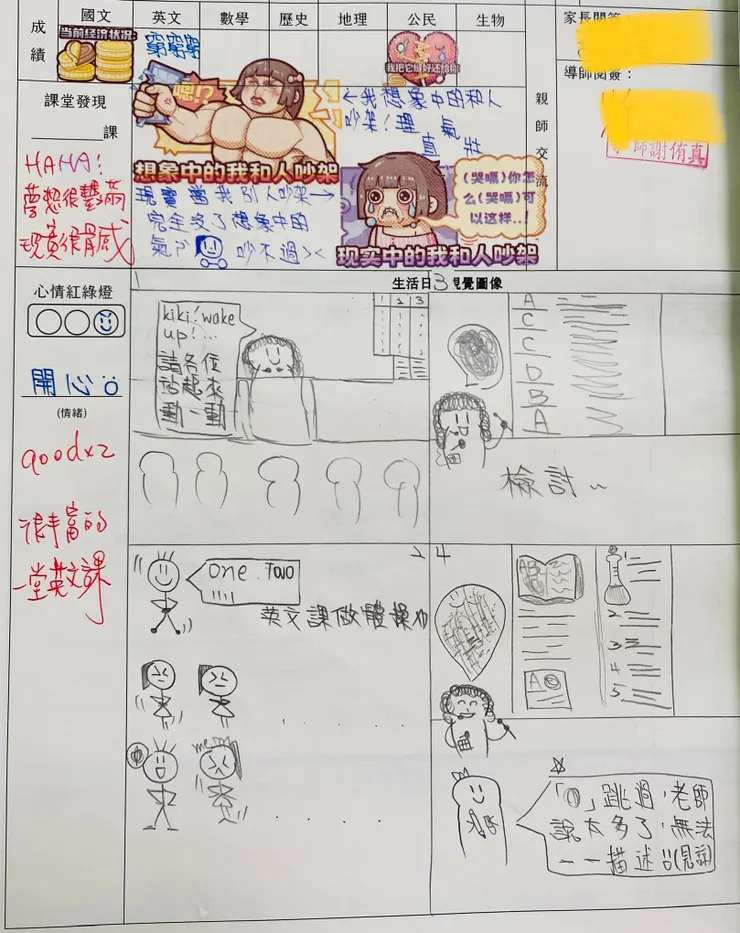 成績
國文
英文
數學
歷史
地理
公民
生物
家長閱簽
導師閱簽：
親師交流
師謝侑真
当前经济状况:
窮窮窮
我把它缝好还给你
课堂發現
課
HAHA!
夢想很豐滿
現實很骨感
嗯!?
想象中的我和人吵架
←我想象中的和人
吵架!理
氣
直
壯
現實當我別人吵架→
完全沒了想象中的
氣
吵不過><
(哭嗝)你怎
么(哭嗝)可
以这样..!
现实中的我和人吵架
心情紅綠燈
開心
(情緒)
goodx2
很丰富的
一堂英文課
生活日
視覺圖像
1
2
3
kiki! wake
up!...
請各位
站起來
動一動
3
A
C
C
D
B
A
檢討~
2
One. Two
!!!!
英文課做體操
me
4
AB
A
1
2
3
4
5
「」跳過，老師
說太多了，無法
一一描述(見諒)